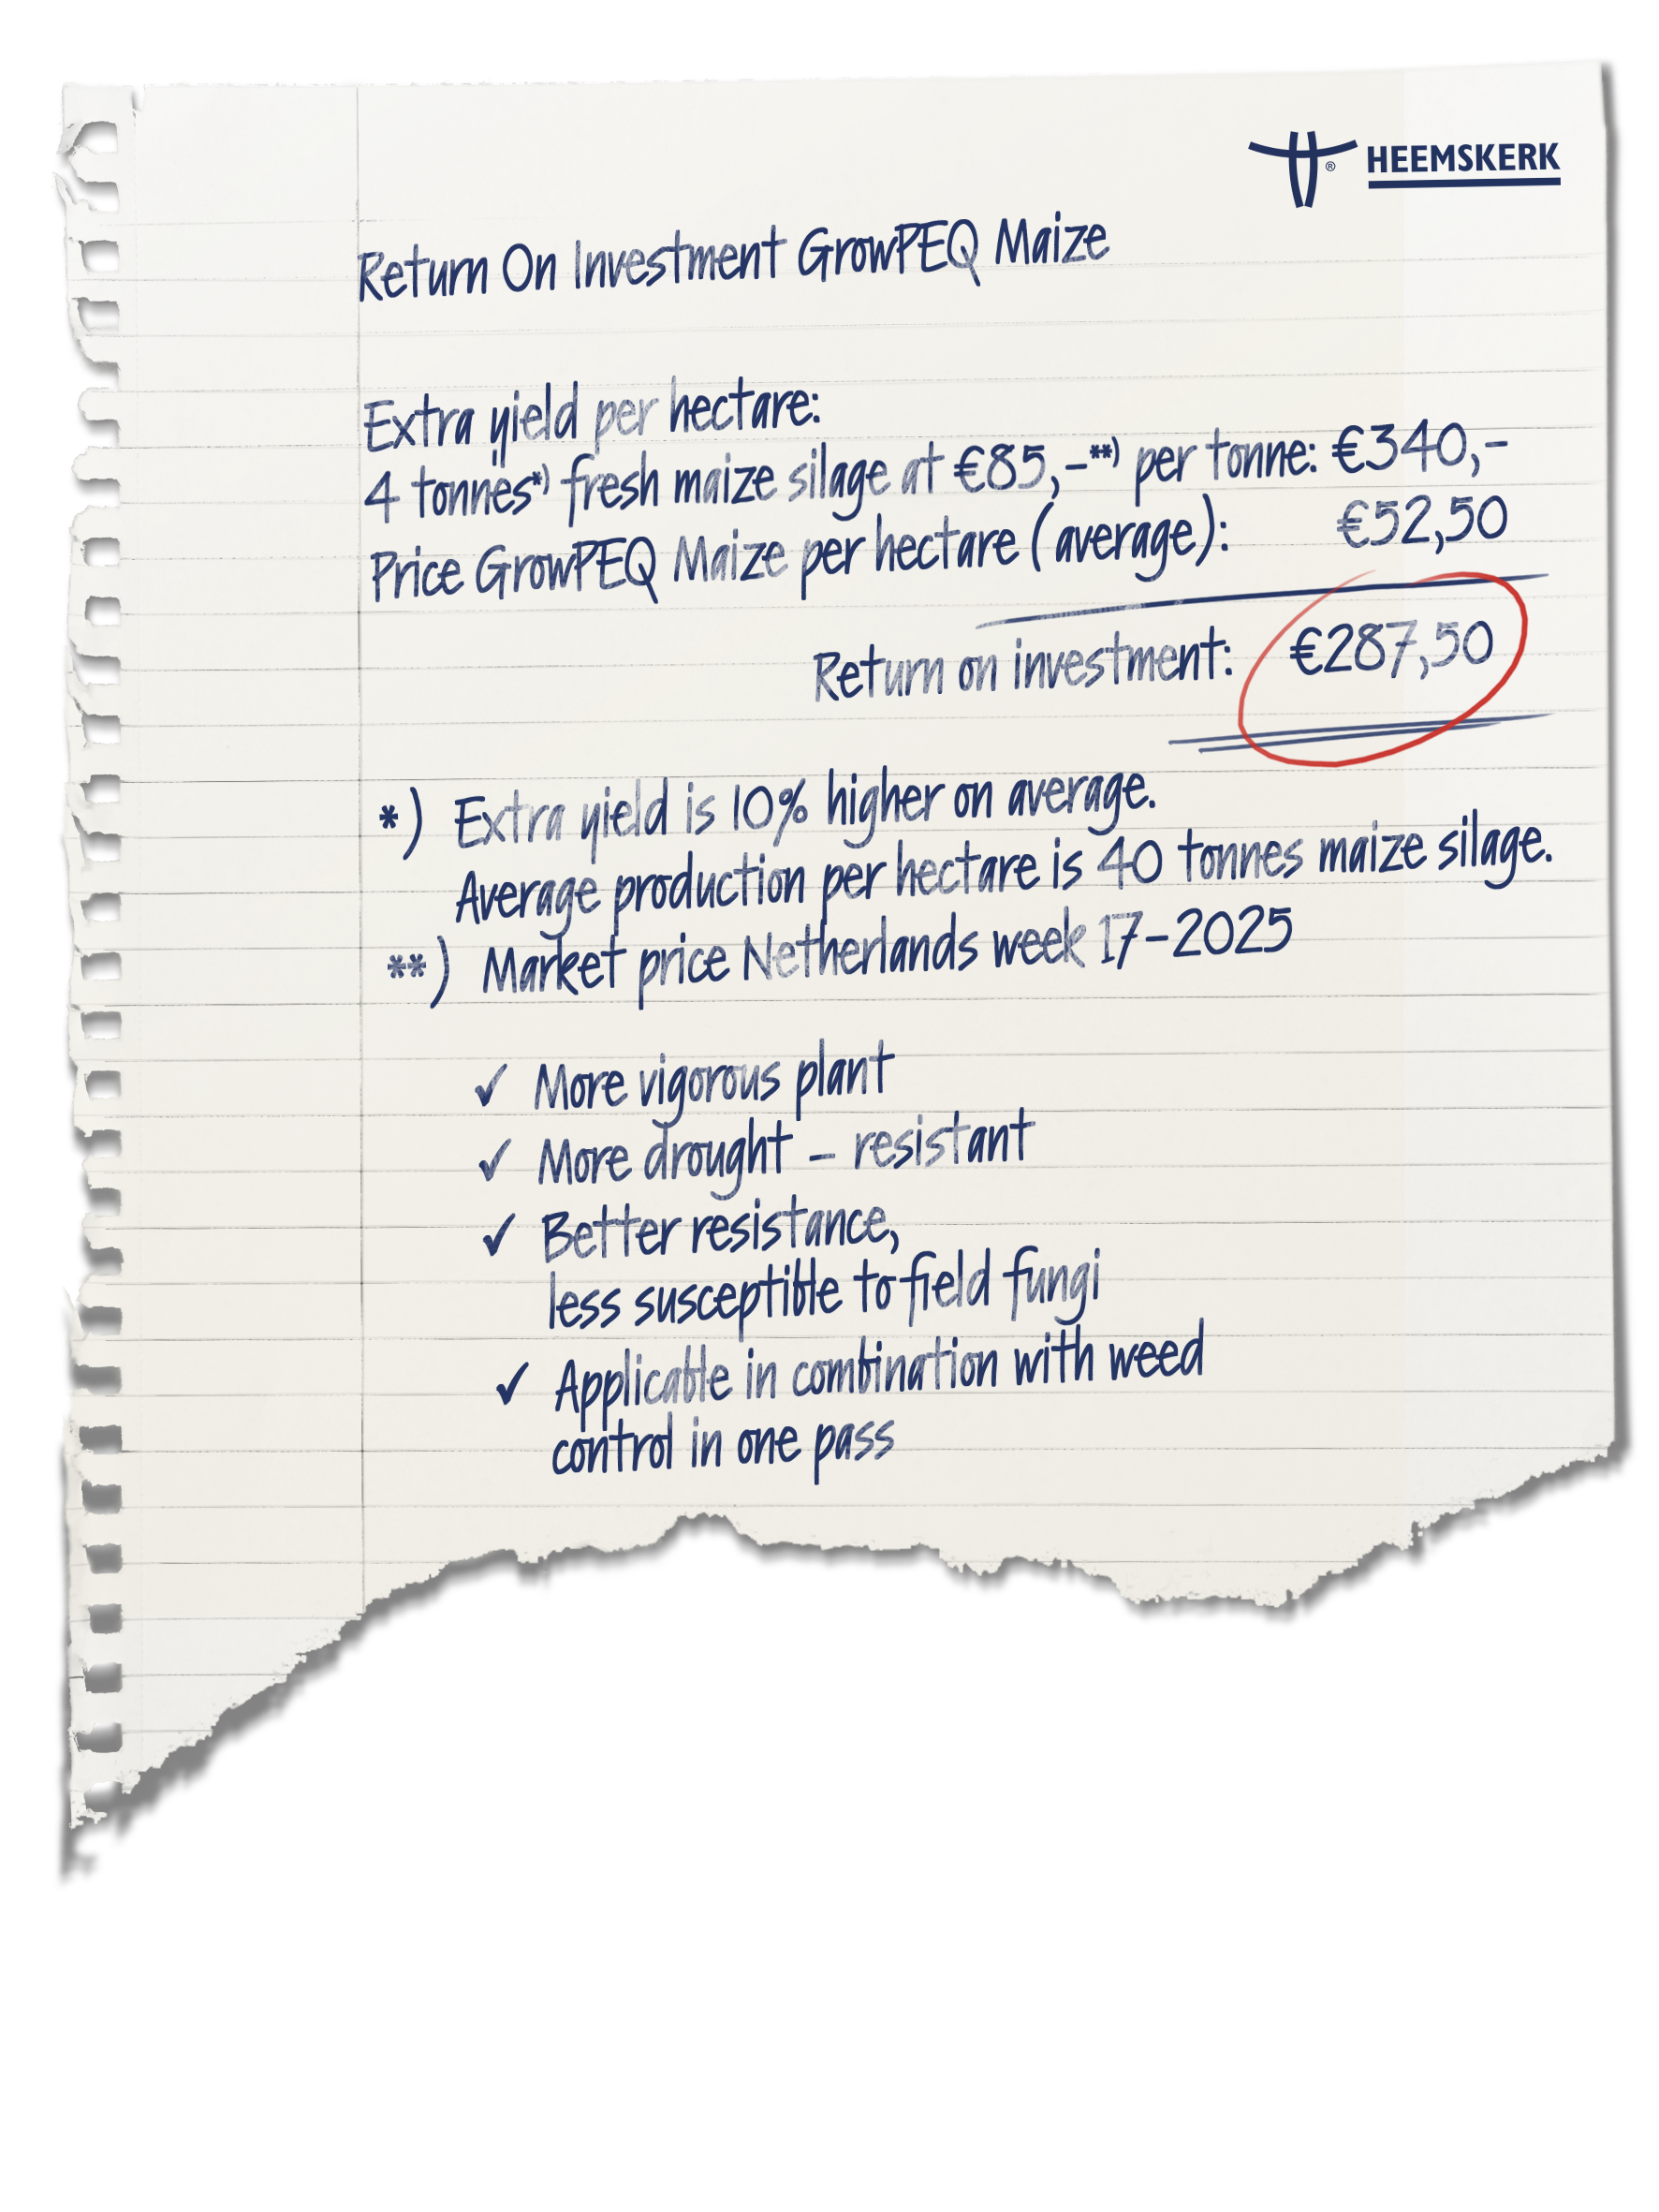 HEEMSKERK
Return On Investment GrowPEQ Maize
Extra yield per hectare:
4 tonnes*) fresh maize silage at €85,-**) per tonne: €340,-
Price GrowPEQ Maize per hectare (average): €52,50
Return on investment: €287,50
*) Extra yield is 10% higher on average.
Average production per hectare is 40 tonnes maize silage.
**) Market price Netherlands week 17-2025
✓ More vigorous plant
✓ More drought - resistant
✓ Better resistance,
less susceptible to field fungi
✓ Applicable in combination with weed
control in one pass